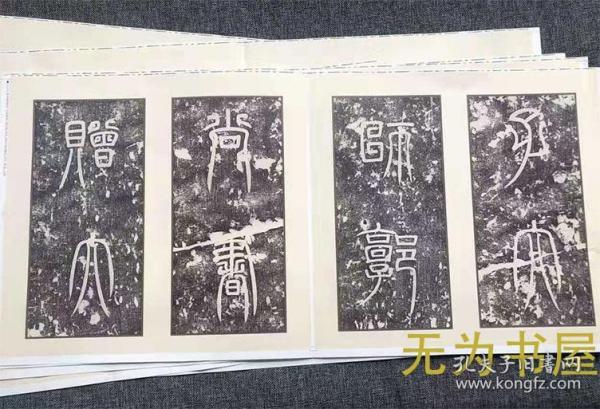 師郭
尚書
贈太
无为书屋
孔夫子旧书网
www.kongfz.com